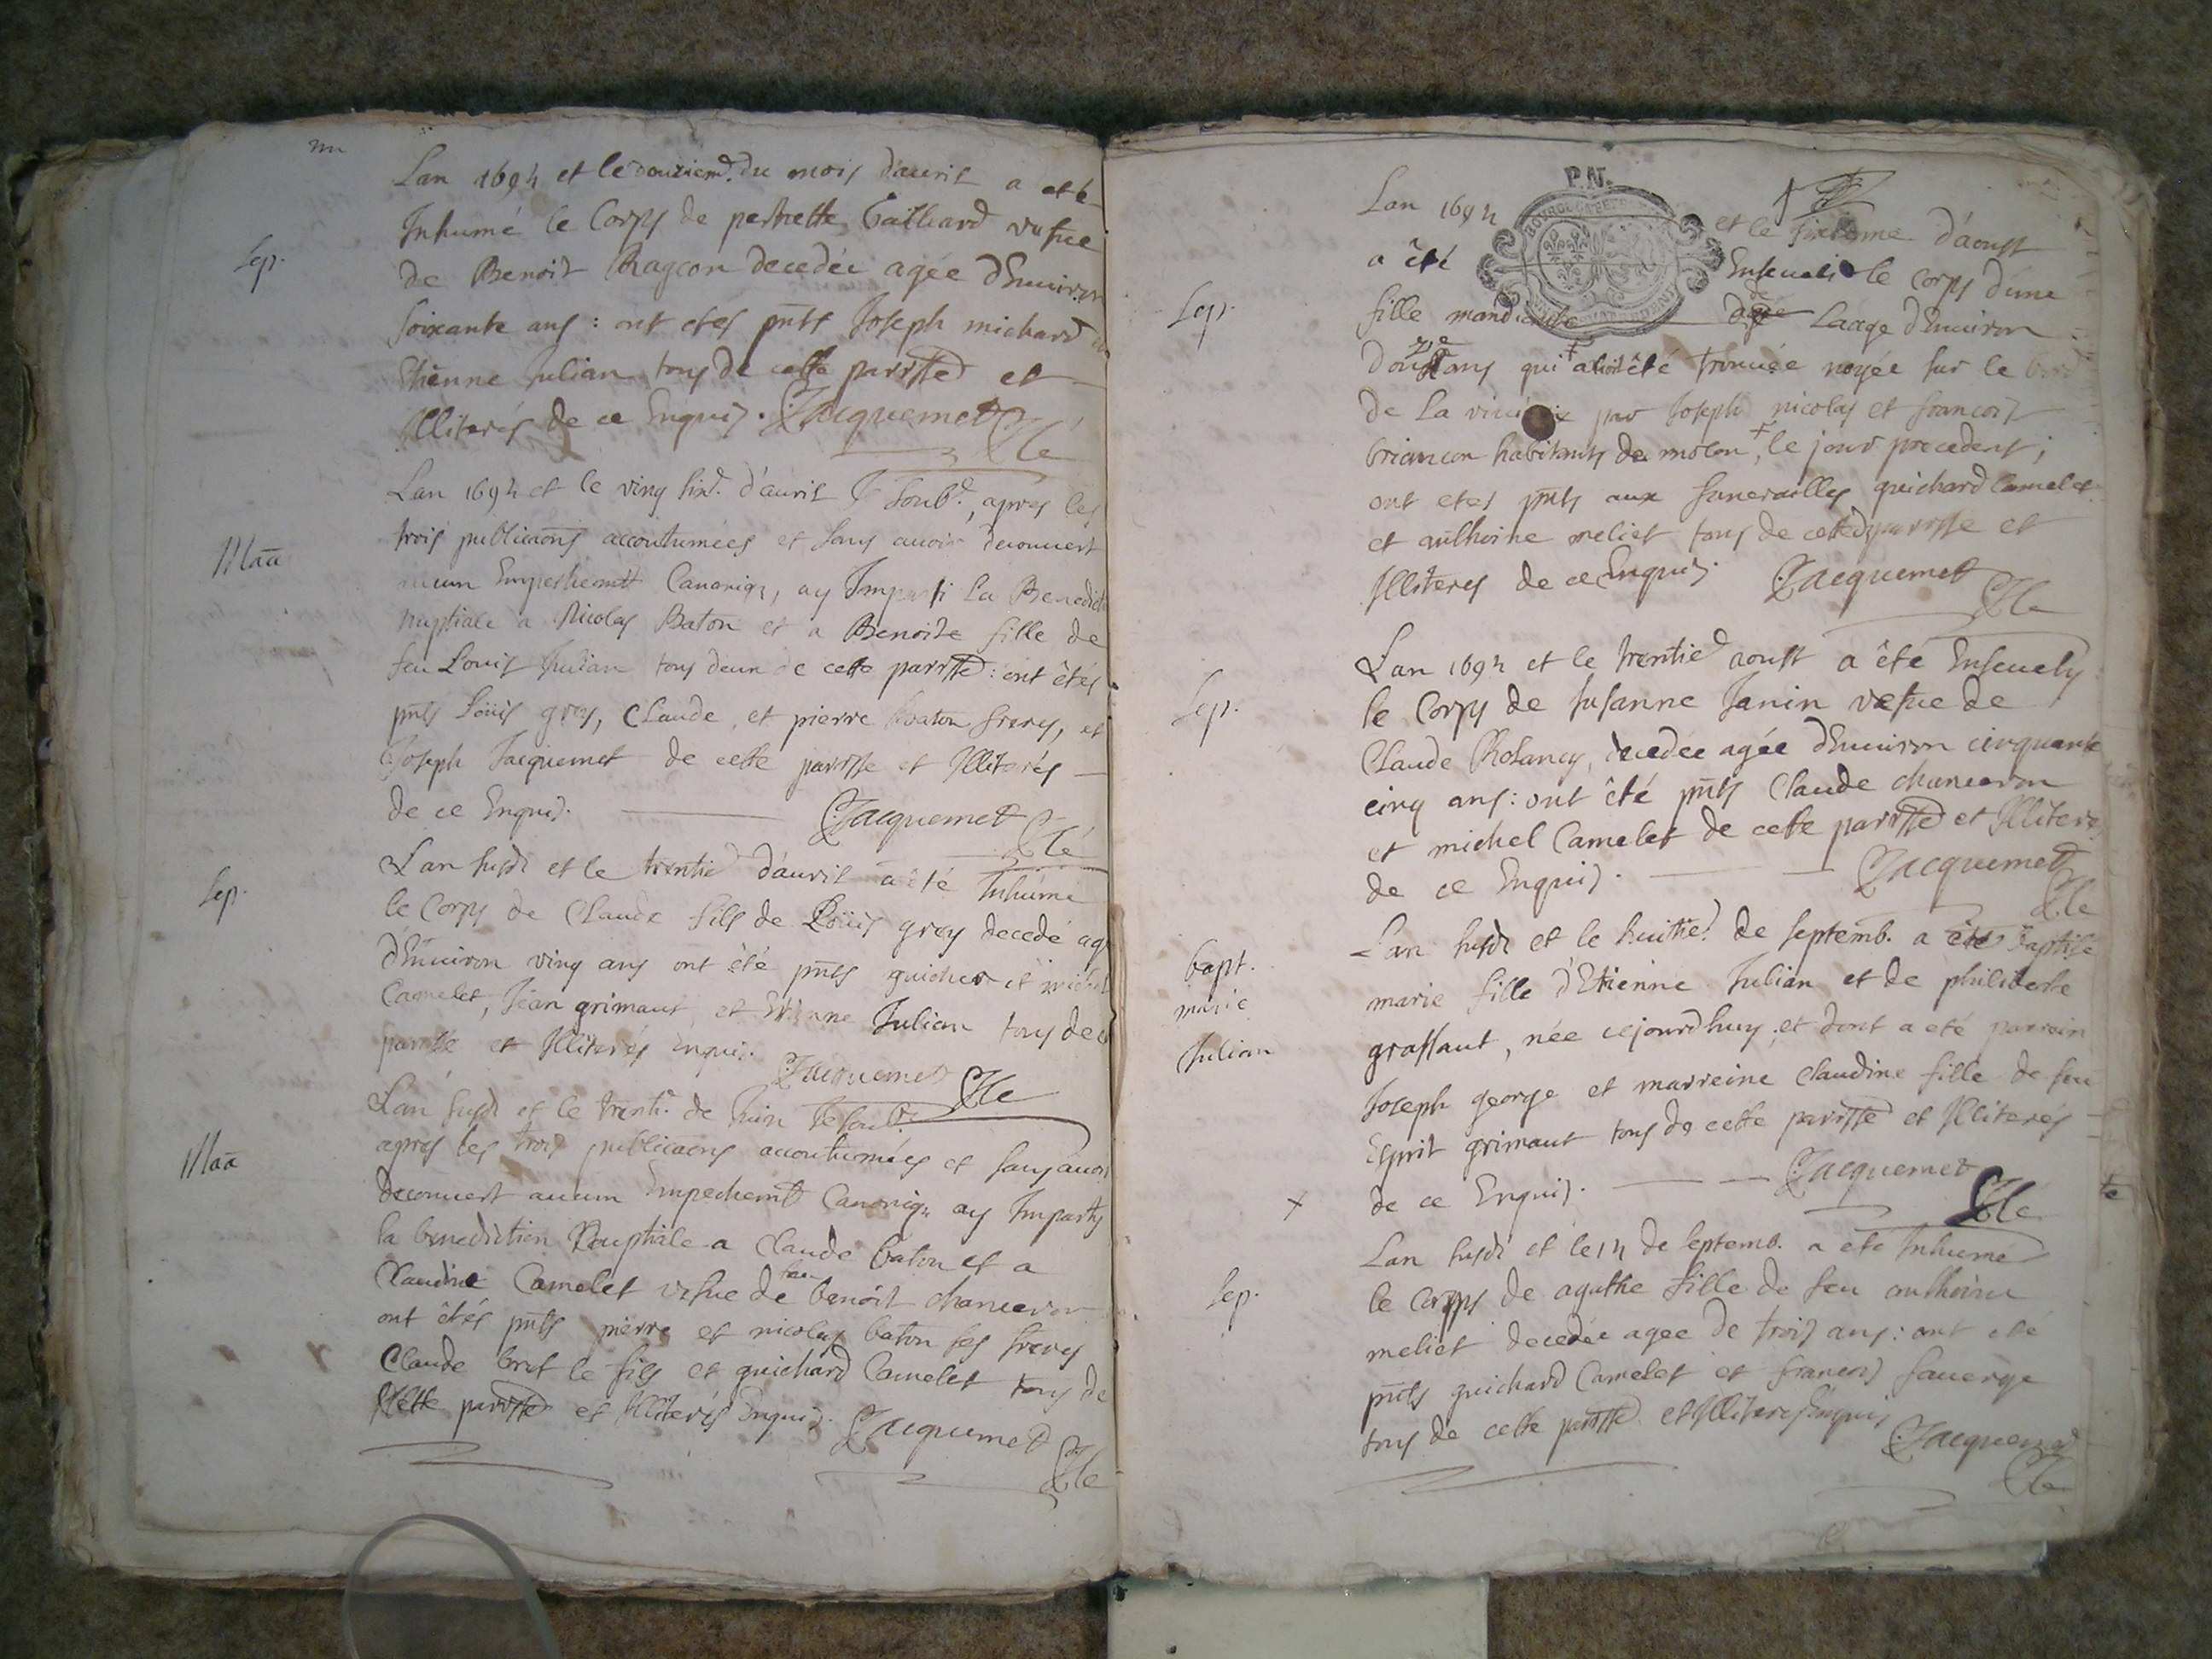 Lan 1694 et le douziem.e du mois d'auril a eté
Sep.
Inhumé le Corps de perrette Gailliard vefue
de Benoit Ragcon decedée agée d'Enuiron
soixante ans : ont etes pnts Joseph michard
Etienne Julian tous de cette parrsse et
Illiterés de ce Enquis. Jacquemet
Clé
Lan 1694 et le ving six.e d'auril Je Soub.é, apres les
Maa
trois publicaons accoutumées et sans auoir decouuert
aucun Empeschemtt Canoniq, ay Imparti La Benedict
nuptiale a Nicolas Baton et a Benoite fille de
feu Louis Julian tous deux de cette parrsse : ont étés
pnts Loüis groy, Claude, et pierre baton freres, et
Joseph Jacquemet de cette parrsse et Illiterés
de ce Enquis. Jacquemet
Clé
Lan susdt et le trentie d'auril a été Inhumé
Sep.
le Corps de Claude fils de Loüis groy decedé agé
d'Enuiron ving ans ont été pnts guichard et michel
Camelet, Jean grimaut, et Etienne Julian tous de
parrsse et Illiterés Enquis. Jacquemet
Clé
Lan susdt et le trenti.e de Juin Je Soub.é
Maa
apres les trois publicaons accoutumées et sans auoir
decouuert aucun Empechemt Canoniq ay Imparty
la benediction Nuptiale a Claude baton et a
Claudine Camelet vefue de feu benoit chanceron
ont étés pnts pierre et nicolas baton ses freres
Claude bret le fils et guichard Camelet tous de
cette parrsse et Illiterés Enquis. Jacquemet
Clé
P.N.
Lan 1694 et le sixieme d'aoust
a été Enseueli le corps d'une
Sep.
fille mandiente de Laage d'Enuiron
douze ans qui auoit été trouuée noyée sur le bord
de La riuiere par Joseph nicolas et francois
briancon habitants de molon, le jour precedent ;
ont etes pnts aux funerailles guichard Camelet
et anthoine meliet tous de cette parrsse et
Illiteres de ce Enquis. Jacquemet
Cle
Lan 1694 et le trentie aoust a été Enseuely
Sep.
le Corps de Susanne Janin vefue de
Claude Rolancy, decedée agée d'Enuiron cinquante
cinq ans : ont été pnts Claude chanceron
et michel Camelet de cette parrsse et Illiterés
de ce Enquis. Jacquemet
Cle
Lan susdt et le huitie. de septemb. a été Baptisé
bapt.
marie
Julian
marie fille d'Etienne Julian et de philiberte
grassaut, née cejourdhuy, et dont a eté parrein
Joseph george et marreine claudine fille de feu
Esprit grimaut tous de cette parrsse et Illiterés
x de ce Enquis. Jacquemet
Clé
Lan susdt et le 14 de septemb. a eté Inhumé
Sep.
le Corps de agathe fille de feu anthoine
meliet decedée agee de trois ans : ont eté
pnts guichard Camelet et francois sauerge
tous de cette parrsse et Illiteres Enquis
Jacquemet
Cle